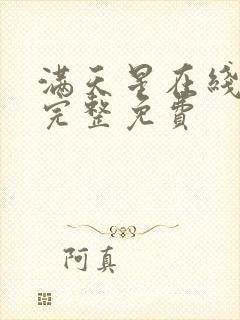 满天星在綫
完整免費
阿真